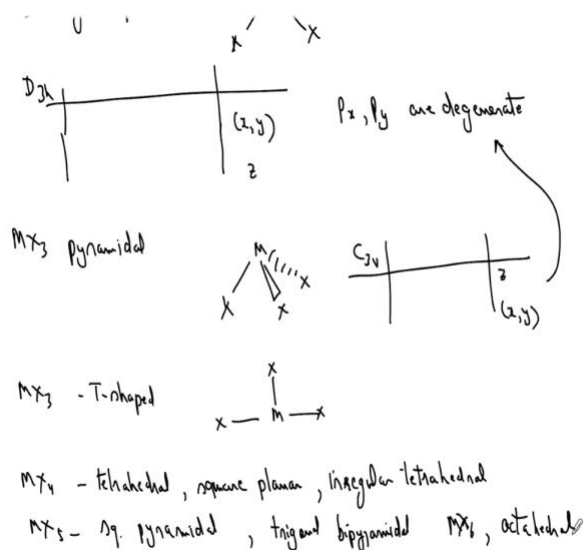 X X
D3h
(x,y)
z
Px, Py are degenerate
MX3 pyramidal
M
X X X
C3v
z
(x,y)
MX3 - T-shaped
X
X — M — X
MX4 - tetrahedral, square planar, irregular tetrahedral
MX5 - sq. pyramidal, trigonal bipyramidal MX6, octahedral